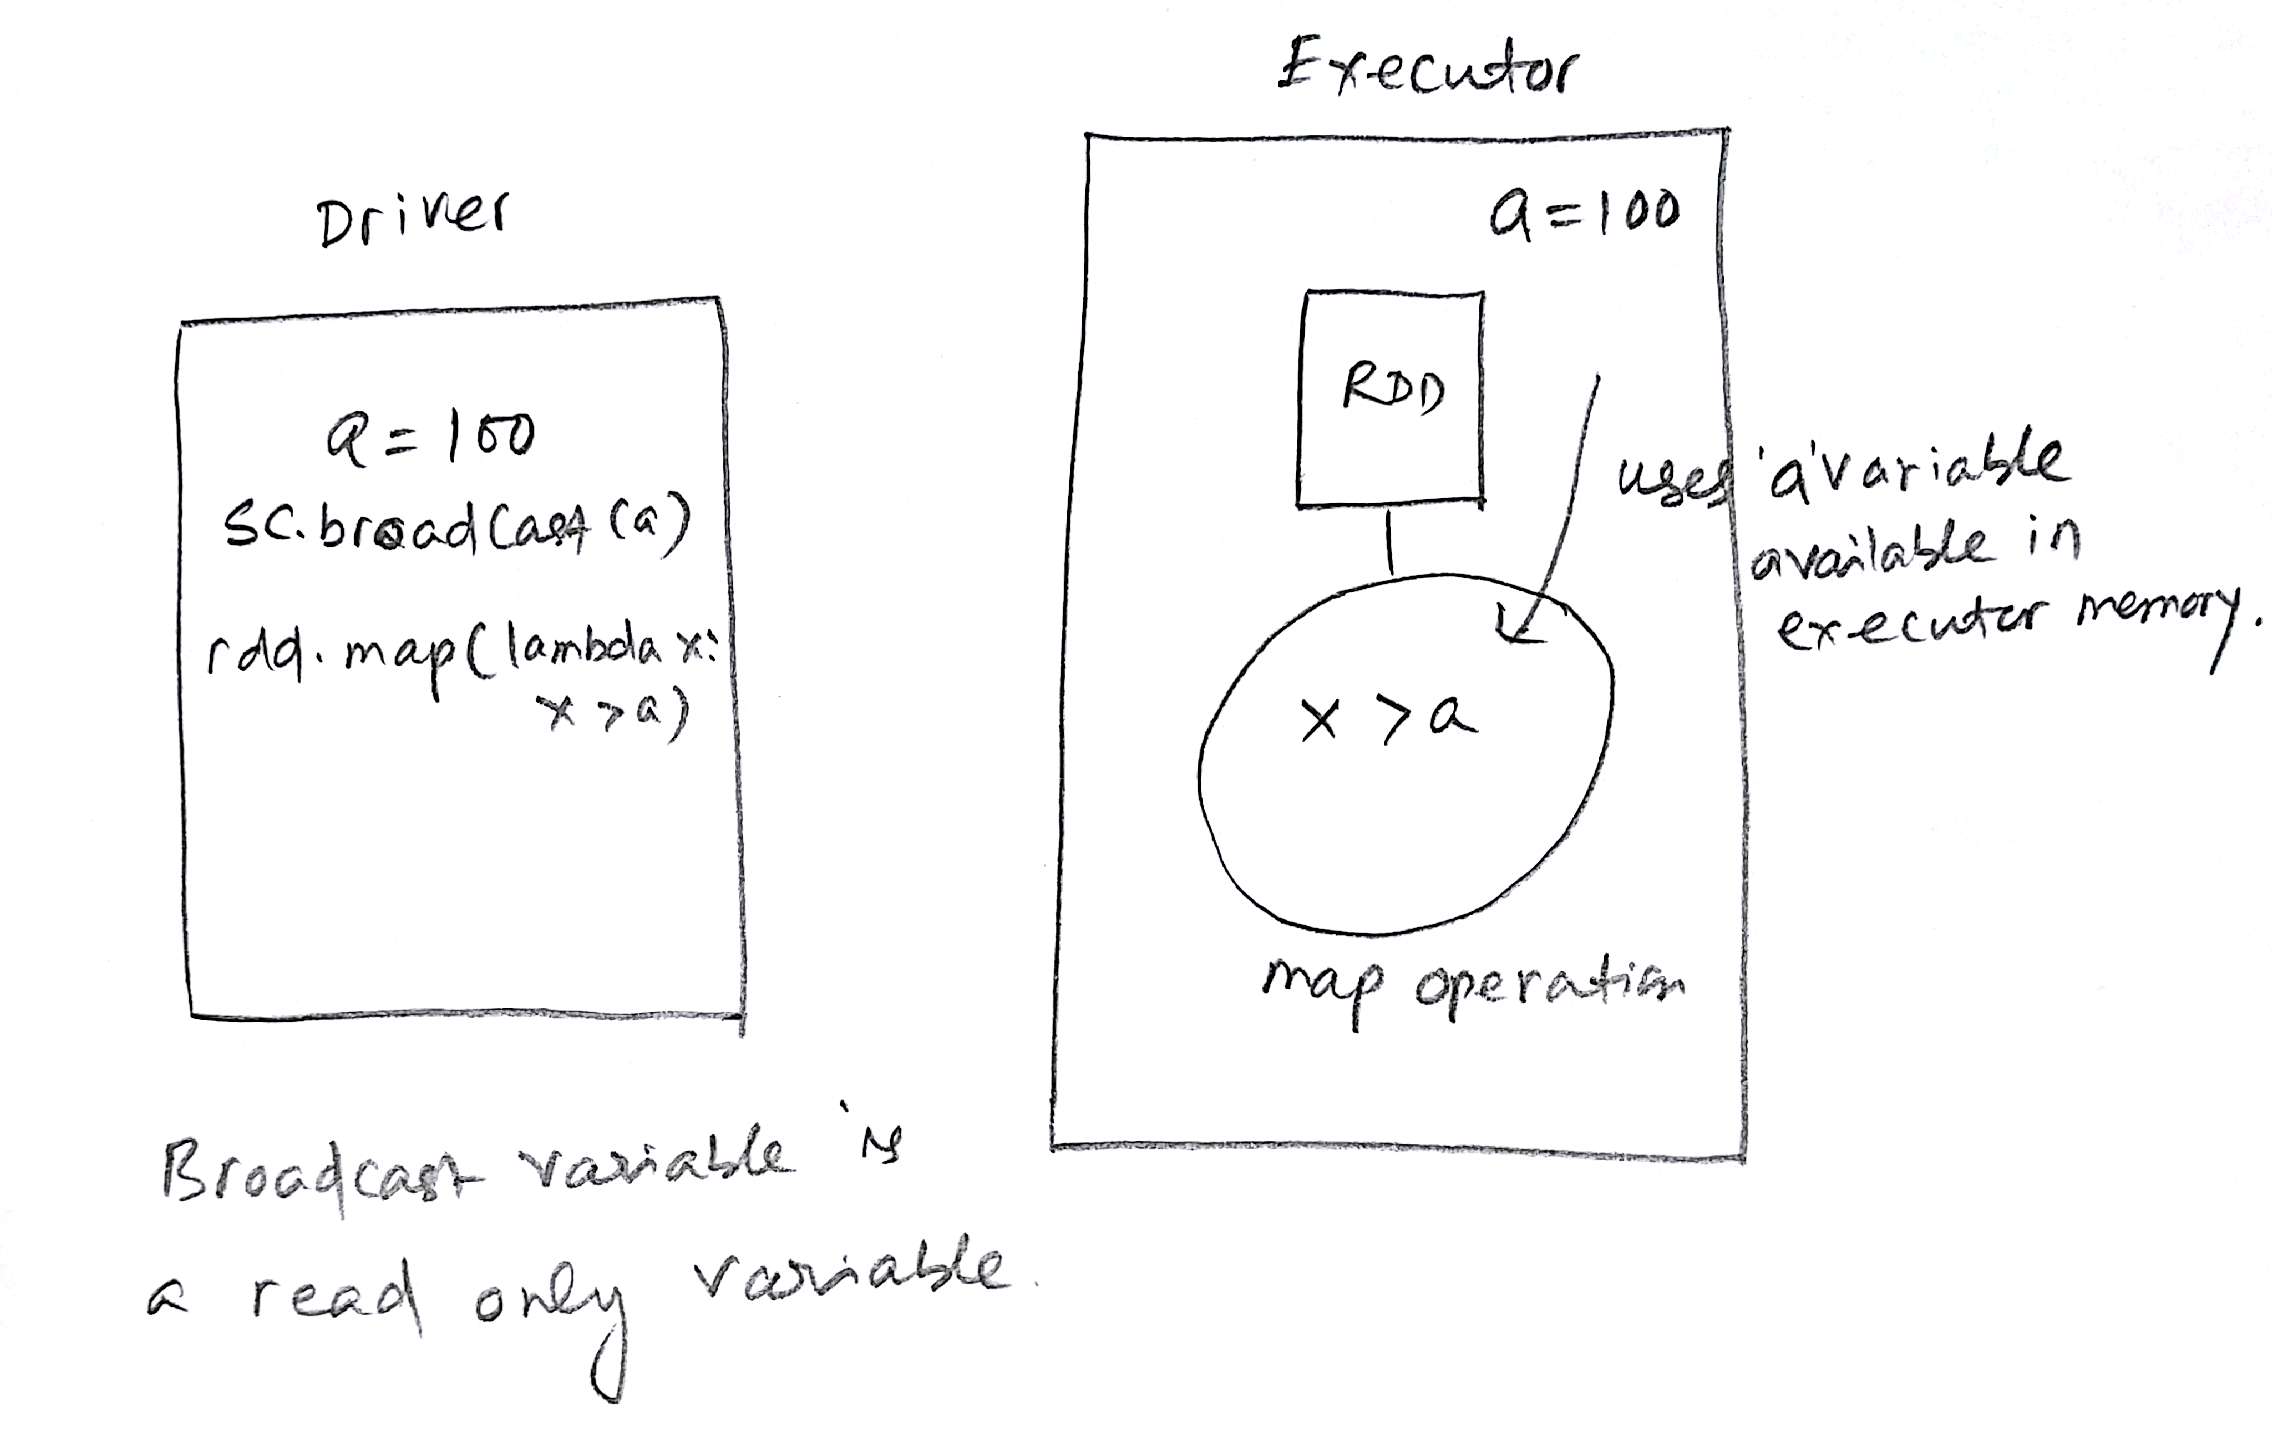 Executor
Driver
a = 100
a = 100
sc.broadcast (a)
rdd. map( lambda x:
x > a)
RDD
uses 'a' variable
available in
executor memory.
x > a
map operation
Broadcast variable is
a read only variable.